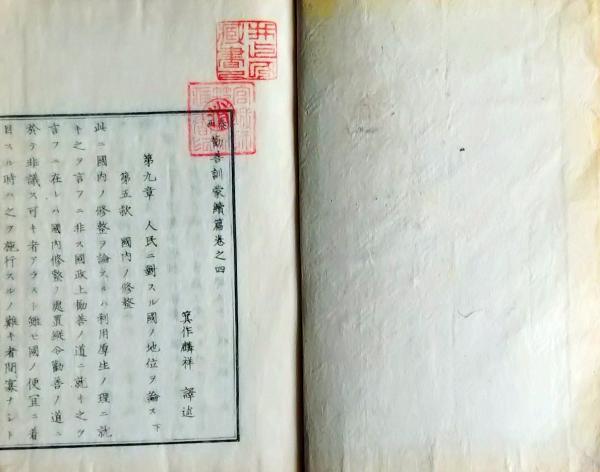 勸善訓蒙續篇卷之四
箕作麟祥 譯述
第九章 人民ニ對スル國ノ地位ヲ論ス 下
第五款 國內ノ修整
此ニ國內ノ修整ヲ論スルハ利用厚生ノ理ニ就
キ之ヲ言フニ非ス國政上勸善ノ道ニ就キ之ヲ
言フニ在レハ國內修整ノ處置縱令勸善ノ道ニ
於テ非議ス可キ者アラスト雖モ國ノ便宜ニ着
目スル時ハ之ヲ施行スルノ難キ者間寡ナシト
藏書